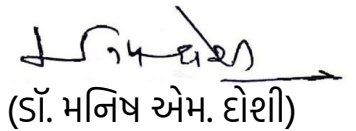 (ડૉ. મનિષ એમ. દોશી)